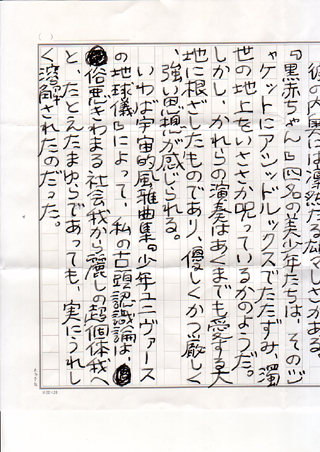 彼の内奥には凛然たる雄々しさがある。
『黒赤ちゃん』四名の美少年たちは、そのジ
ャケットにアシッドルックスでたたずみ、濁
世の地上をいささか呪っているかのようだ。
しかし、かれらの演奏はあくまでも愛する大
地に根ざしたものであり、優しくかつ厳しく
、強い思想が感じられる。
いわば宇宙的風雅曲集。『少年ユニヴァース
の地球儀』によって、私の古頭認識論は、
俗悪きわまる社会我から麗しの超個体我へ
と、たとえたまゆらであっても、実にうれし
く溶解されたのだった。